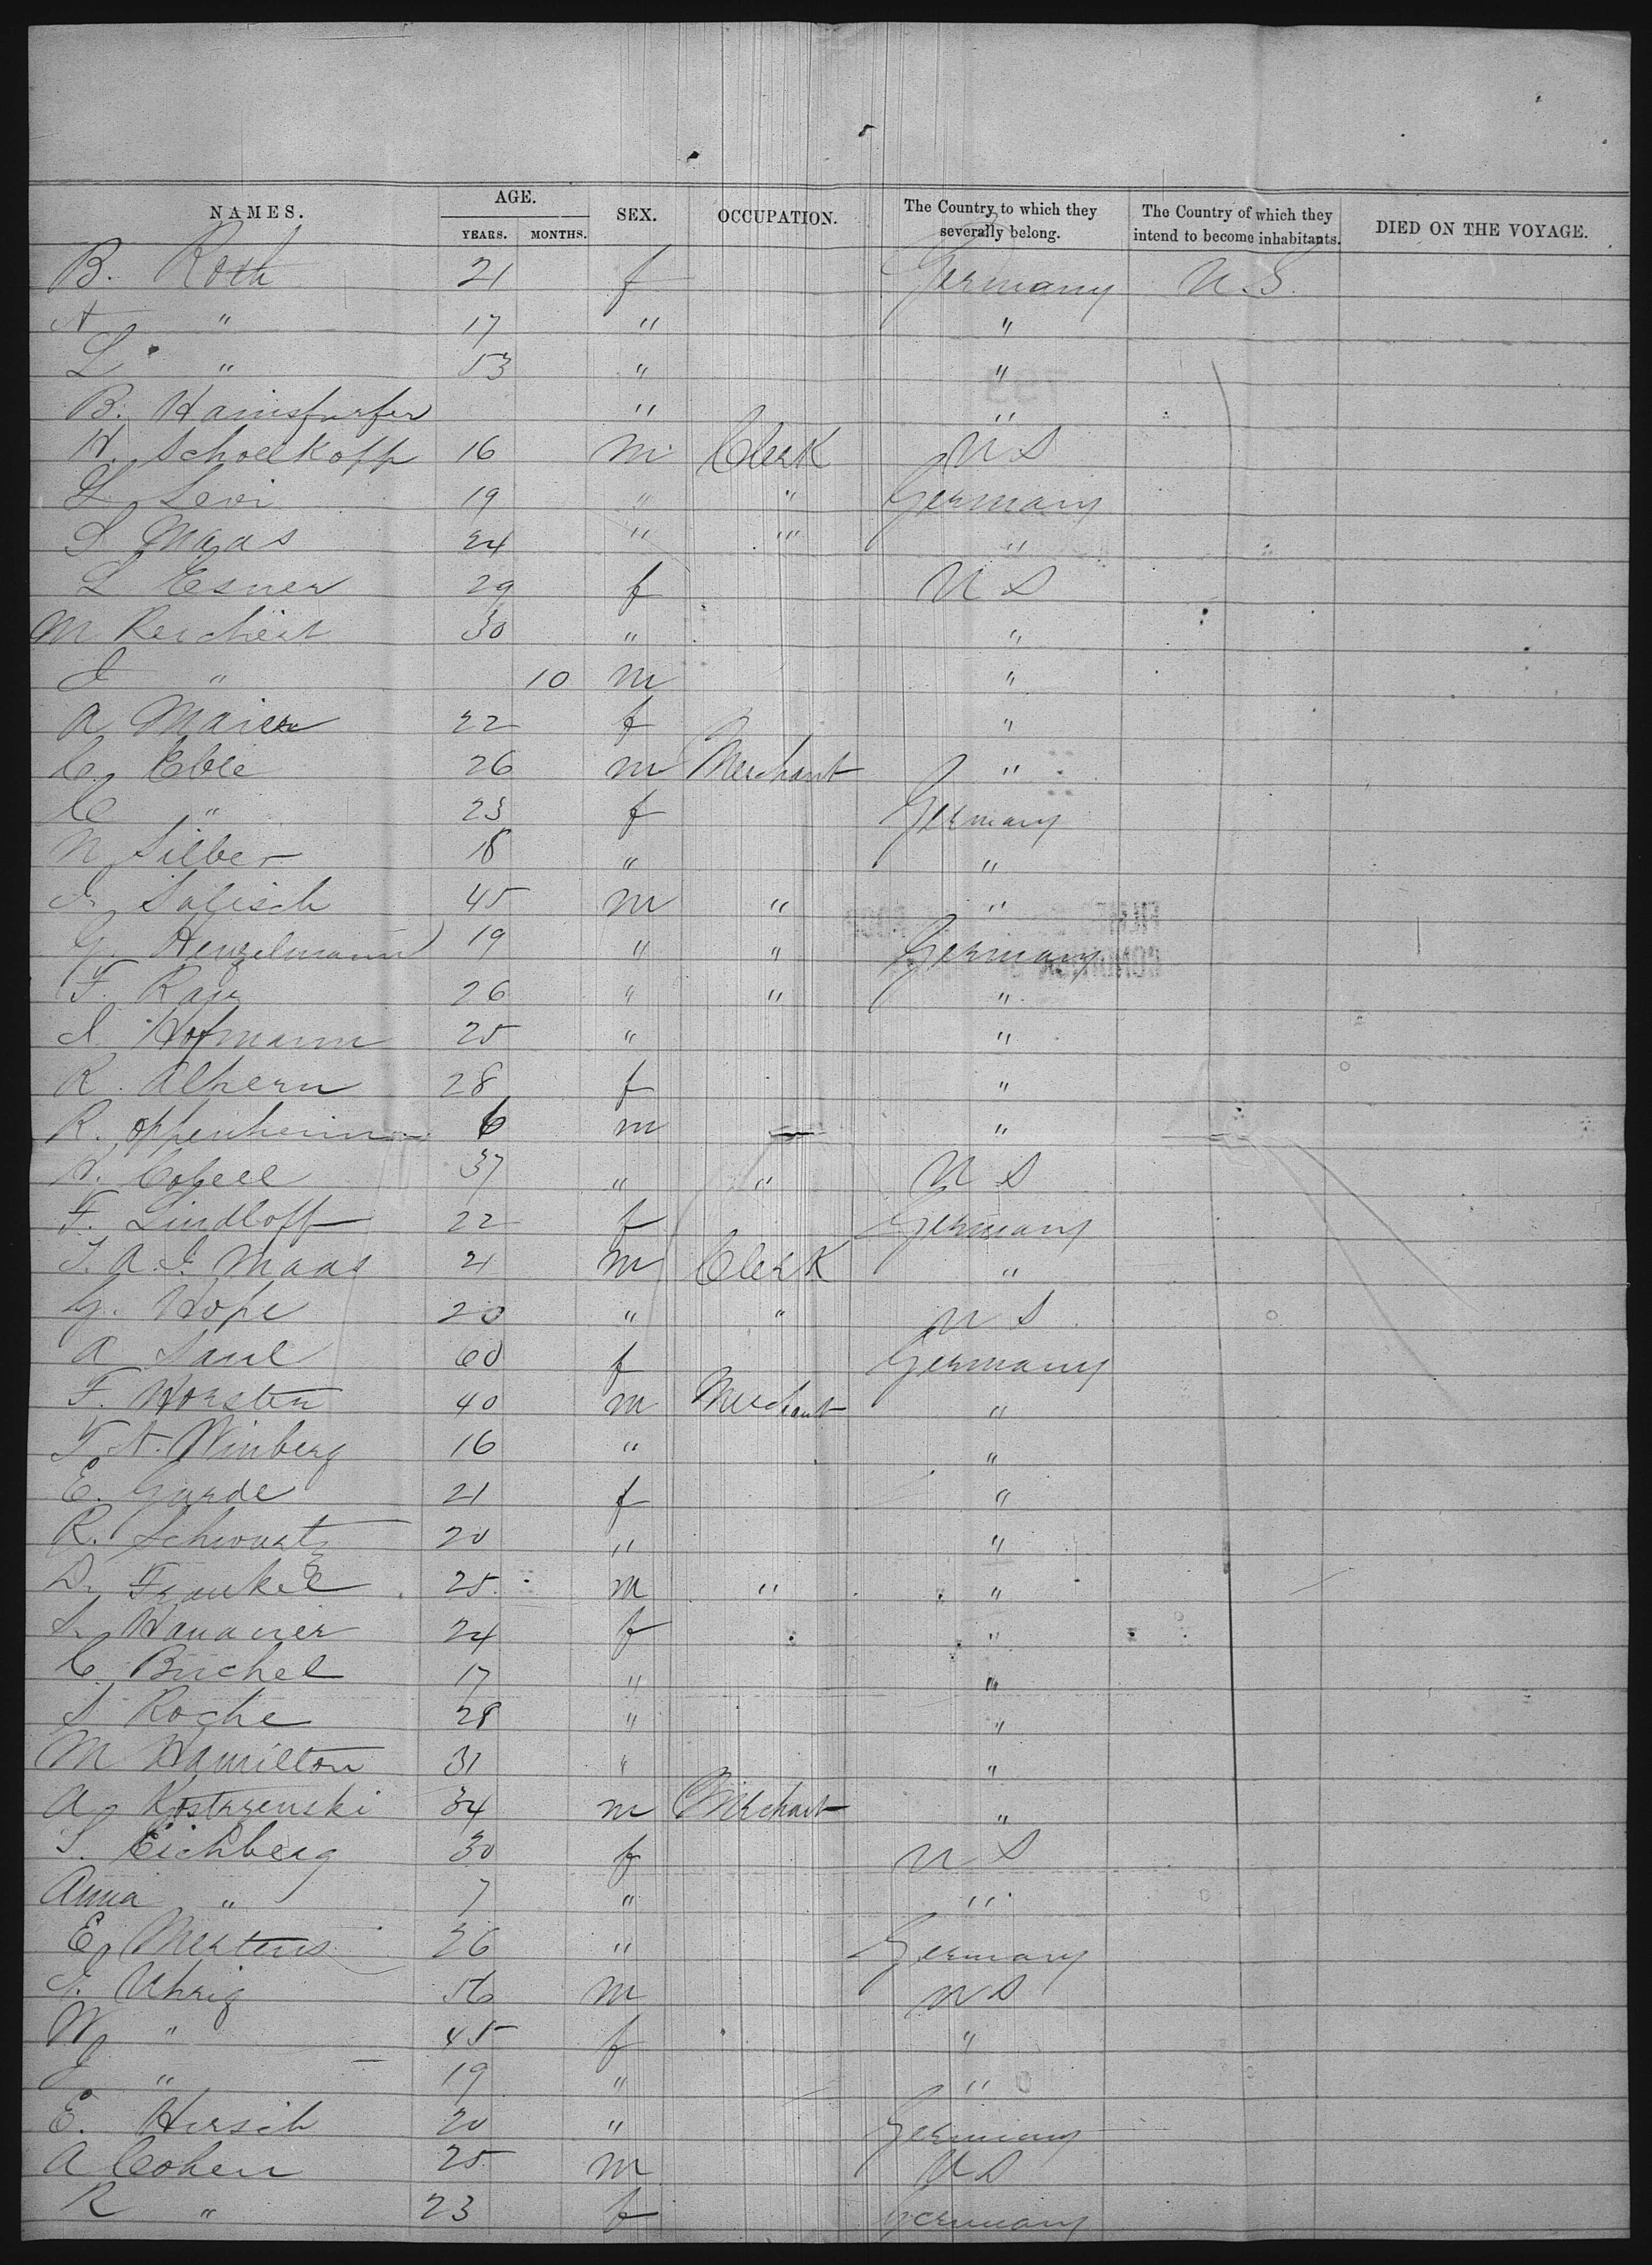 NAMES. AGE. SEX. OCCUPATION. The Country to which they severally belong. The Country of which they intend to become inhabitants. DIED ON THE VOYAGE.
YEARS. MONTHS.
B. Roth 21 f Germany U.S.
A " 17 " "
L " 53 " "
B. " "
H. Schoellkopf 16 m Clerk U S
L Levi 19 " " Germany
S Maas 24 " " "
L Esner 29 f U S
M Reichert 30 " "
J " 10 m "
A Maier 22 f "
C. Eble 26 m Merchant "
C " 23 f Germany
N Silber 18 " "
J. Salisch 45 m " "
G. Henzelmann 19 " " Germany
F. Rau 26 " " "
J. Hofmann 25 " "
R. Alhern 28 f "
R. Oppenheim 6 m — "
37 " " U S
F. Lindloff 22 f Germany
J. A. J. Maas 21 m Clerk "
G. Hope 20 " " U S
A Saul 60 f Germany
F. Horsten 40 m Merchant "
F. A. Winberg 16 " "
E. Garde 21 f "
R. Schwartz 20 " "
D. Frankel 25 m " "
S. Hanauer 24 f "
C. Büchel 17 " "
S Roche 28 " "
M Hamilton 31 " "
A. Kostrzenski 34 m Merchant "
S. Eichberg 30 f U S
Anna " 7 " "
E. Mertens 26 " Germany
J. Uhrig 56 m U S
W " 45 f "
J " 19 " "
E. Hirsch 20 " Germany
A Cohen 25 m U S
R " 23 f Germany